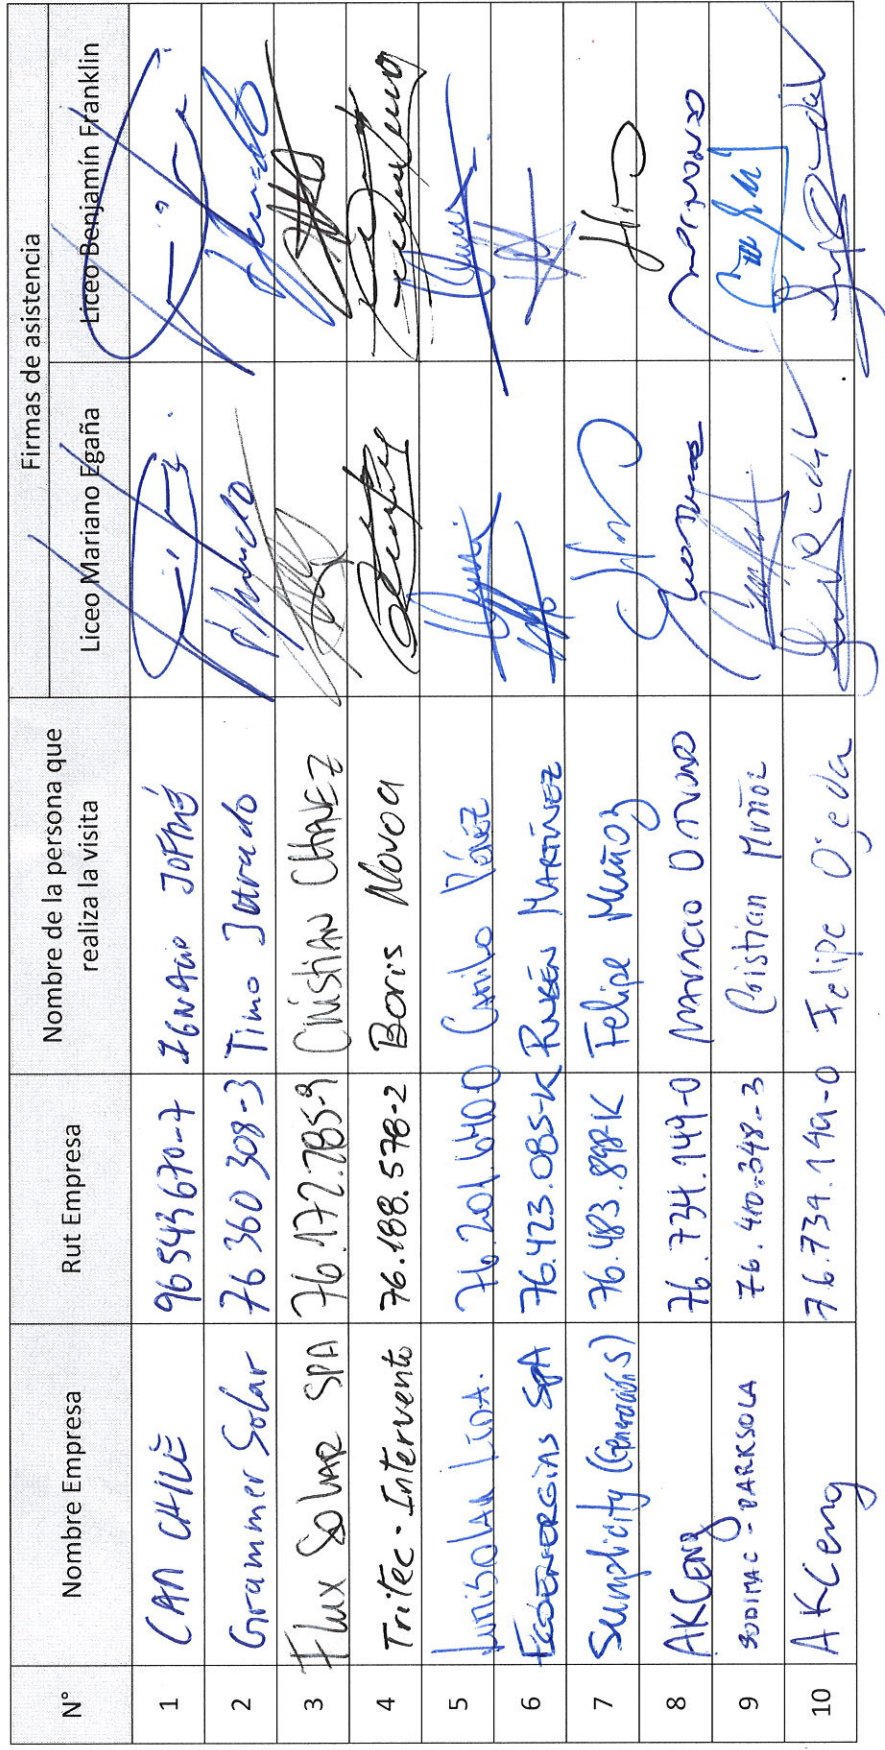 N° Nombre Empresa Rut Empresa Nombre de la persona que realiza la visita Firmas de asistencia
Liceo Mariano Egaña Liceo Benjamín Franklin
1 CAM CHILE 96543670-7 IGNACIO JOFRÉ
2 Grammer Solar 76 360 308-3 Timo
3 Flux Solar SPA 76.172.285-9 Cristian CHAVEZ
4 Tritec-Intervento 76.188.578-2 Boris Novoa
5 LTDA. 76.201.640-0 Camilo
6 ECOENERGIAS SPA 76.423.085-K RUBÉN MARTÍNEZ
7 Sunplicity 76.483.898-K Felipe Muñoz
8 AKCENG 76.734.149-0 MAURICIO
9 SODIMAC - DARKSOLA 76.410.348-3 Cristian Muñoz
10 AKCeng 76.734.149-0 Felipe Ojeda